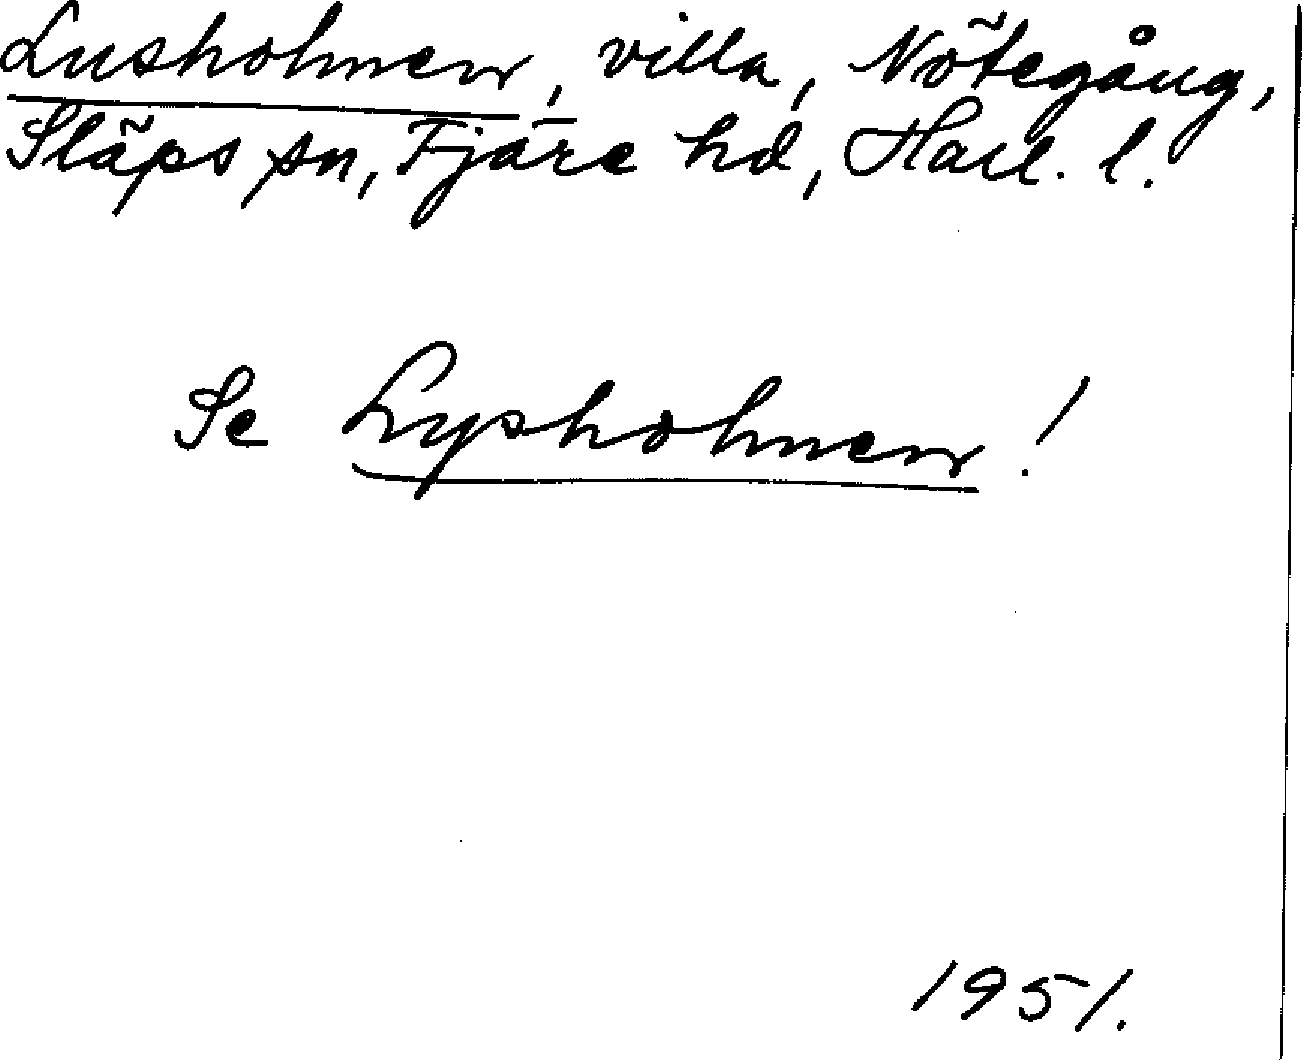 Lusholmen, villa, Nötegång,
Släps sn, Fjäre hd, Hall. l.
Se Lysholmen!
1951.